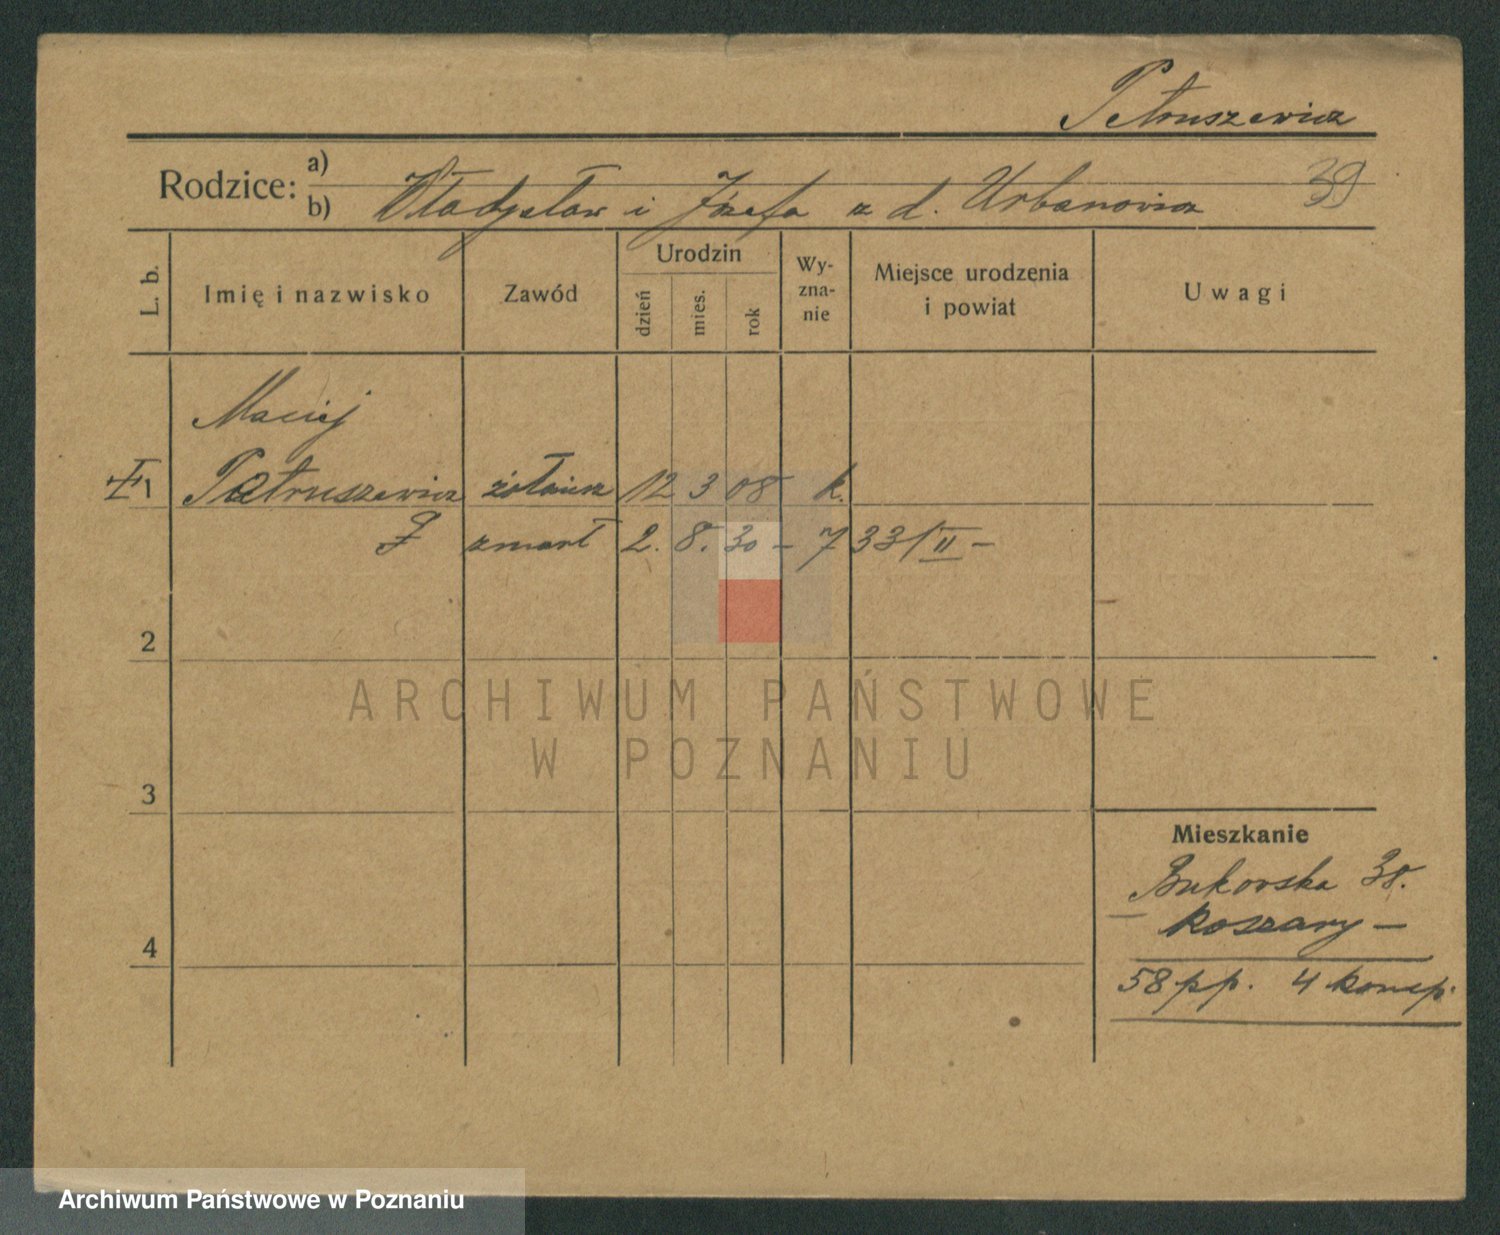 Petruszewicz
Rodzice: a)
b) Władysław i Józefa z d. Urbanowicz 39
L. b. Imię i nazwisko Zawód Urodzin dzień mies. rok Wy-zna-nie Miejsce urodzenia i powiat Uwagi
Maciej
1 Petruszewicz żołnierz 12 3 08 k.
zmarł 2. 8. 30 – 7 331/II –
2
ARCHIWUM PAŃSTWOWE
W POZNANIU
3
Mieszkanie
Bukowska 38.
koszary –
4
58 pp. 4 komp.
Archiwum Państwowe w Poznaniu